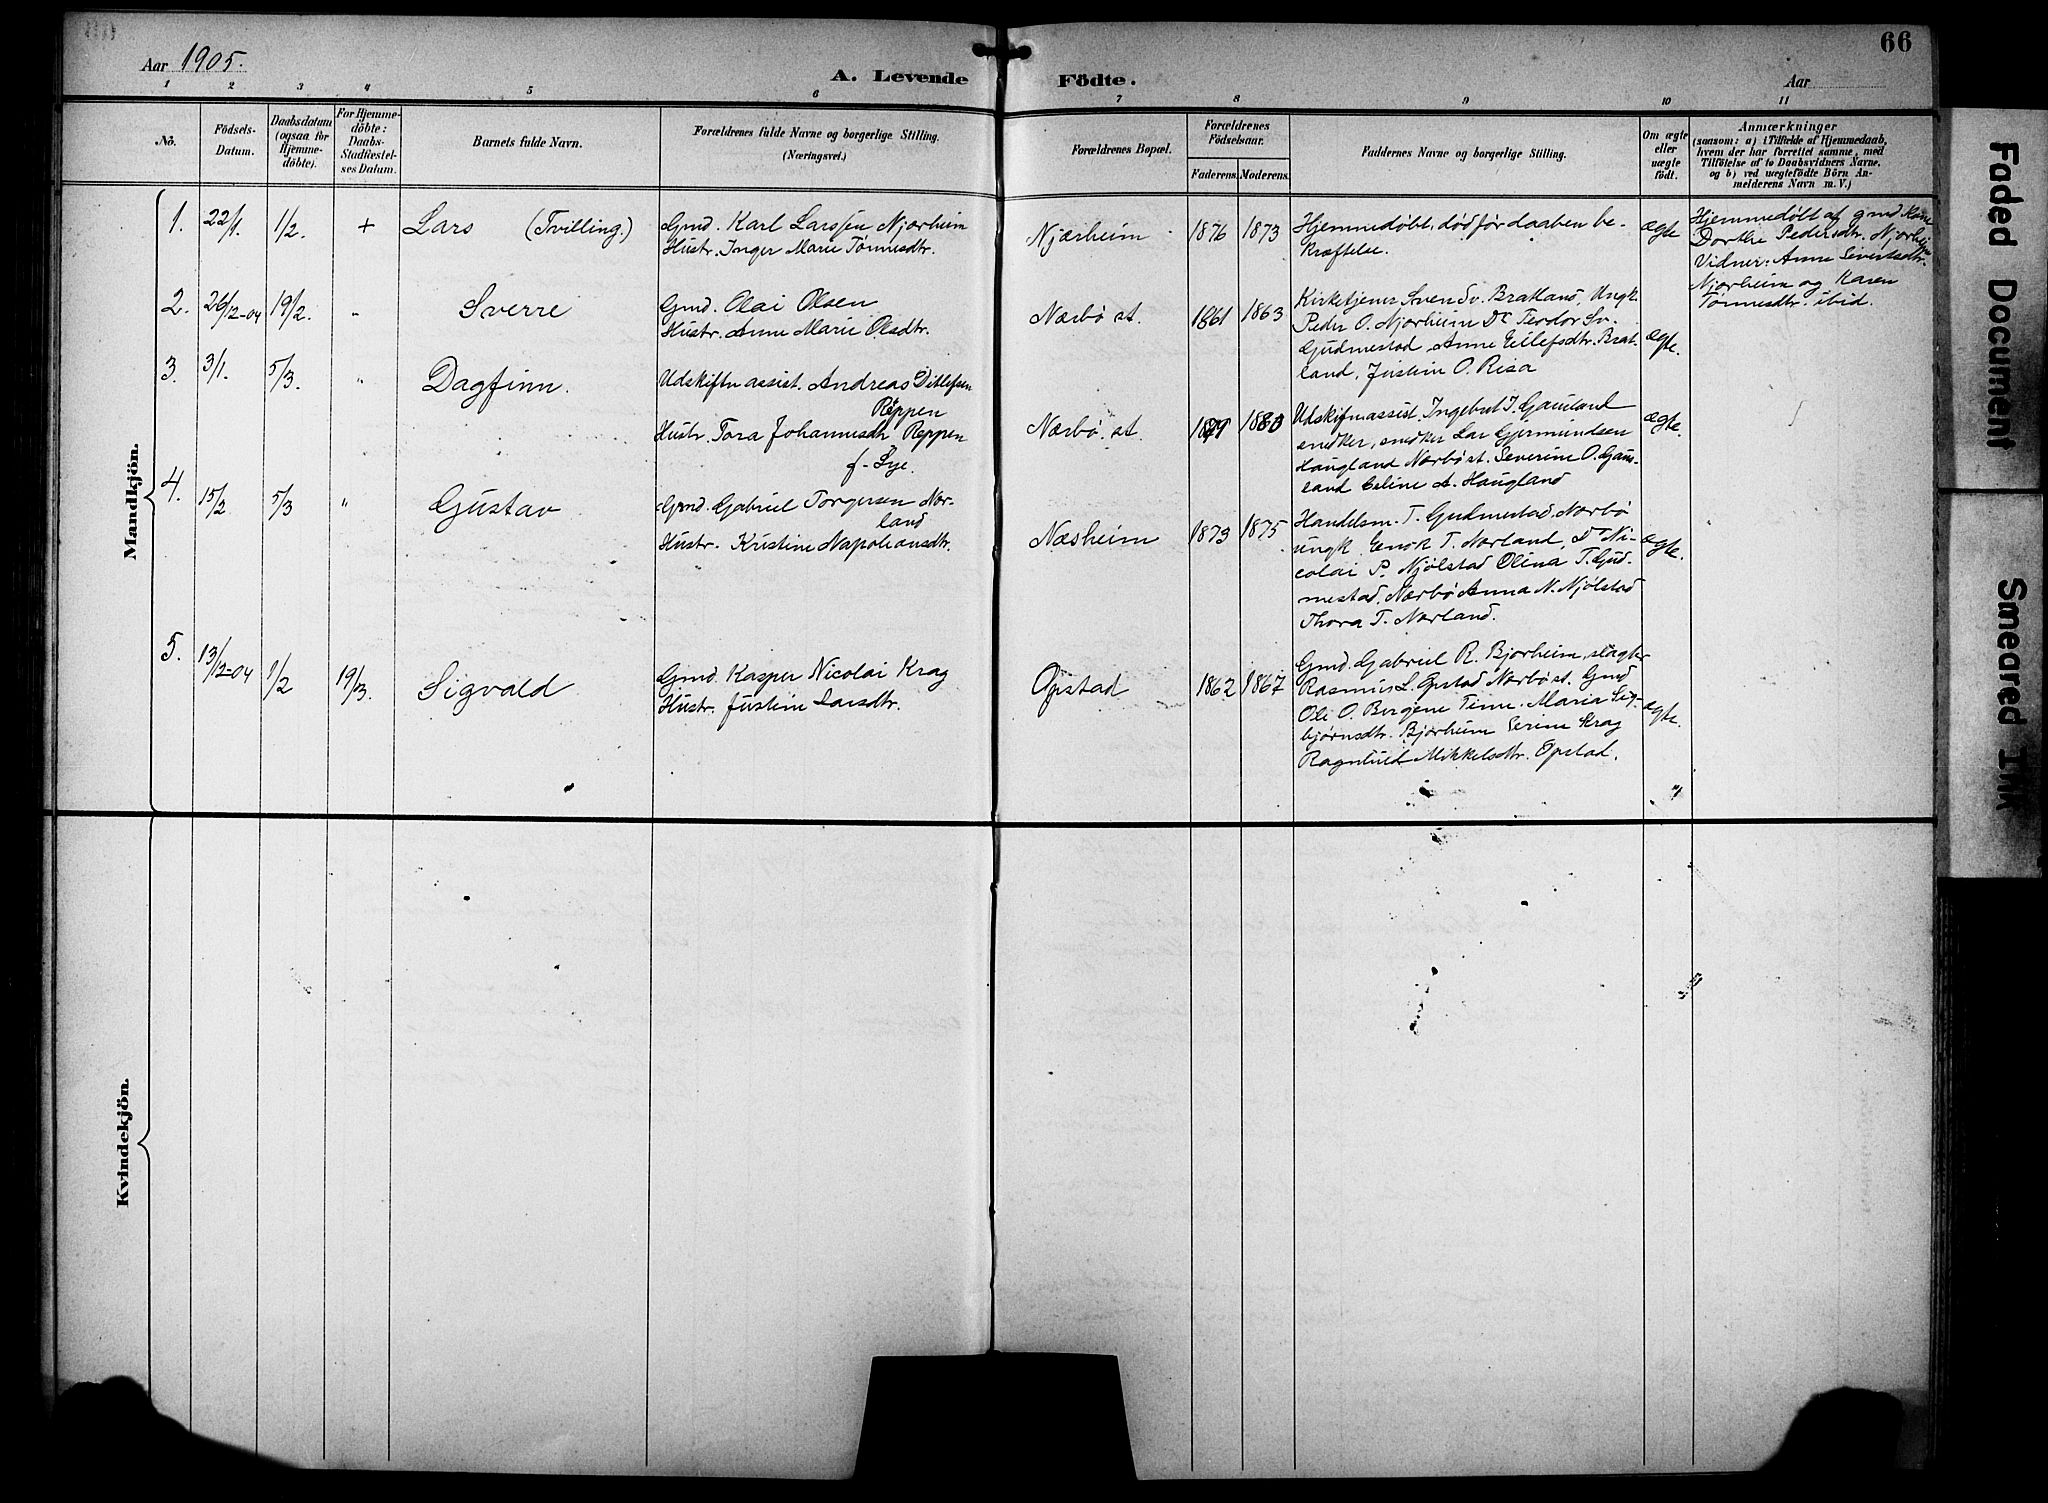 66
Aar 1905.
A. Levende Födte.
Aar
1 2 3 4 5 6 7 8 9 10 11
No.
Födsels-
Datum.
Daabsdatum
(ogsaa for
Hjemme-
döbte).
For Hjemme-
döbte:
Daabs-
Stadfestel-
ses Datum.
Barnets fulde Navn.
Forældrenes fulde Navne og borgerlige Stilling.
(Næringsvei.)
Forældrenes Bopæl.
Forældrenes
Födselsaar.
Faderens. Moderens.
Faddernes Navne og borgerlige Stilling.
Om ægte
eller
uægte
födt.
Anmærkninger
(saasom: a) i Tilfælde af Hjemmedaab,
hvem der har forrettet samme, med
Tilföielse af to Daabsvidners Navne,
og b) ved uægtefödte Börn An-
melderens Navn m. V.)
Mandkjön.
1. 22/1. 1/2. + Lars (Tvilling.)
Gmd. Karl Larssen Njærheim
Hustr. Inger Marie Tønnesdtr.
Njærheim 1876 1873
Hjemmedøbt, død før daaben be-
kræftelse.
ægte
Hjemmedøbt af gmd Kone
Dorthe Pedersdtr. Njorheim
Vidner: Anne Sivertsdtr.
Njorheim og Karen
Tønnesdtr. ibid.
2. 26/12-04 19/2. " Sverre
Gmd. Olai Olsen
Hustr. Anne Marie Olsdtr.
Nærbö st. 1861 1863
Kirketjener Sven Sv. Bratland, Ungk.
Peder O. Njorheim Do Teodor Sv.
Gudmestad, Anne Eilefsdtr. Brat-
land, Justin O. Risa
ægte.
3. 3/1. 5/3. " Dagfinn.
Udskiftn assist. Andreas Ditlefsen
Reppen
Hustr. Tora Johannesdtr Reppen
f. Lye.
Nærbö. st. 1879 1880
Udskifnassist. Ingebret J. Gausland
snedker, snedker Lar Gjermundsen
Haugland Nærbö st. Severine O. Gaus-
land Celine A. Haugland
ægte.
4. 15/2 5/3 " Gustav
Gmd. Gabriel Torgersen Nær-
land
Hustr. Kristine Napoleonsdtr.
Næsheim 1873 1875
Handelsm. T. Gudmestad. Nærbö
ungk. Enok T. Nærland, Do Ni-
colai P. Njølstad Olina T. Gud-
mestad, Nærbö Anna N. Njølstad
Thora T. Nærland.
ægte.
5. 13/12-04 1/2 19/3. Sigvald
Gmd. Kasper Nicolai Krag
Hustr. Justine Larsdtr.
Opstad 1862 1867
Gmd. Gabriel R. Bjorheim, slagter
Rasmus L. Opstad Nærbö st. Gmd
Ole O. Bergene Time. Maria Seg-
bjørnsdtr. Bjorheim Serine Krag
Ragnhild Mikkelsdtr. Opstad.
ægte.
Kvindekjön.
Faded Document
Smeared Ink